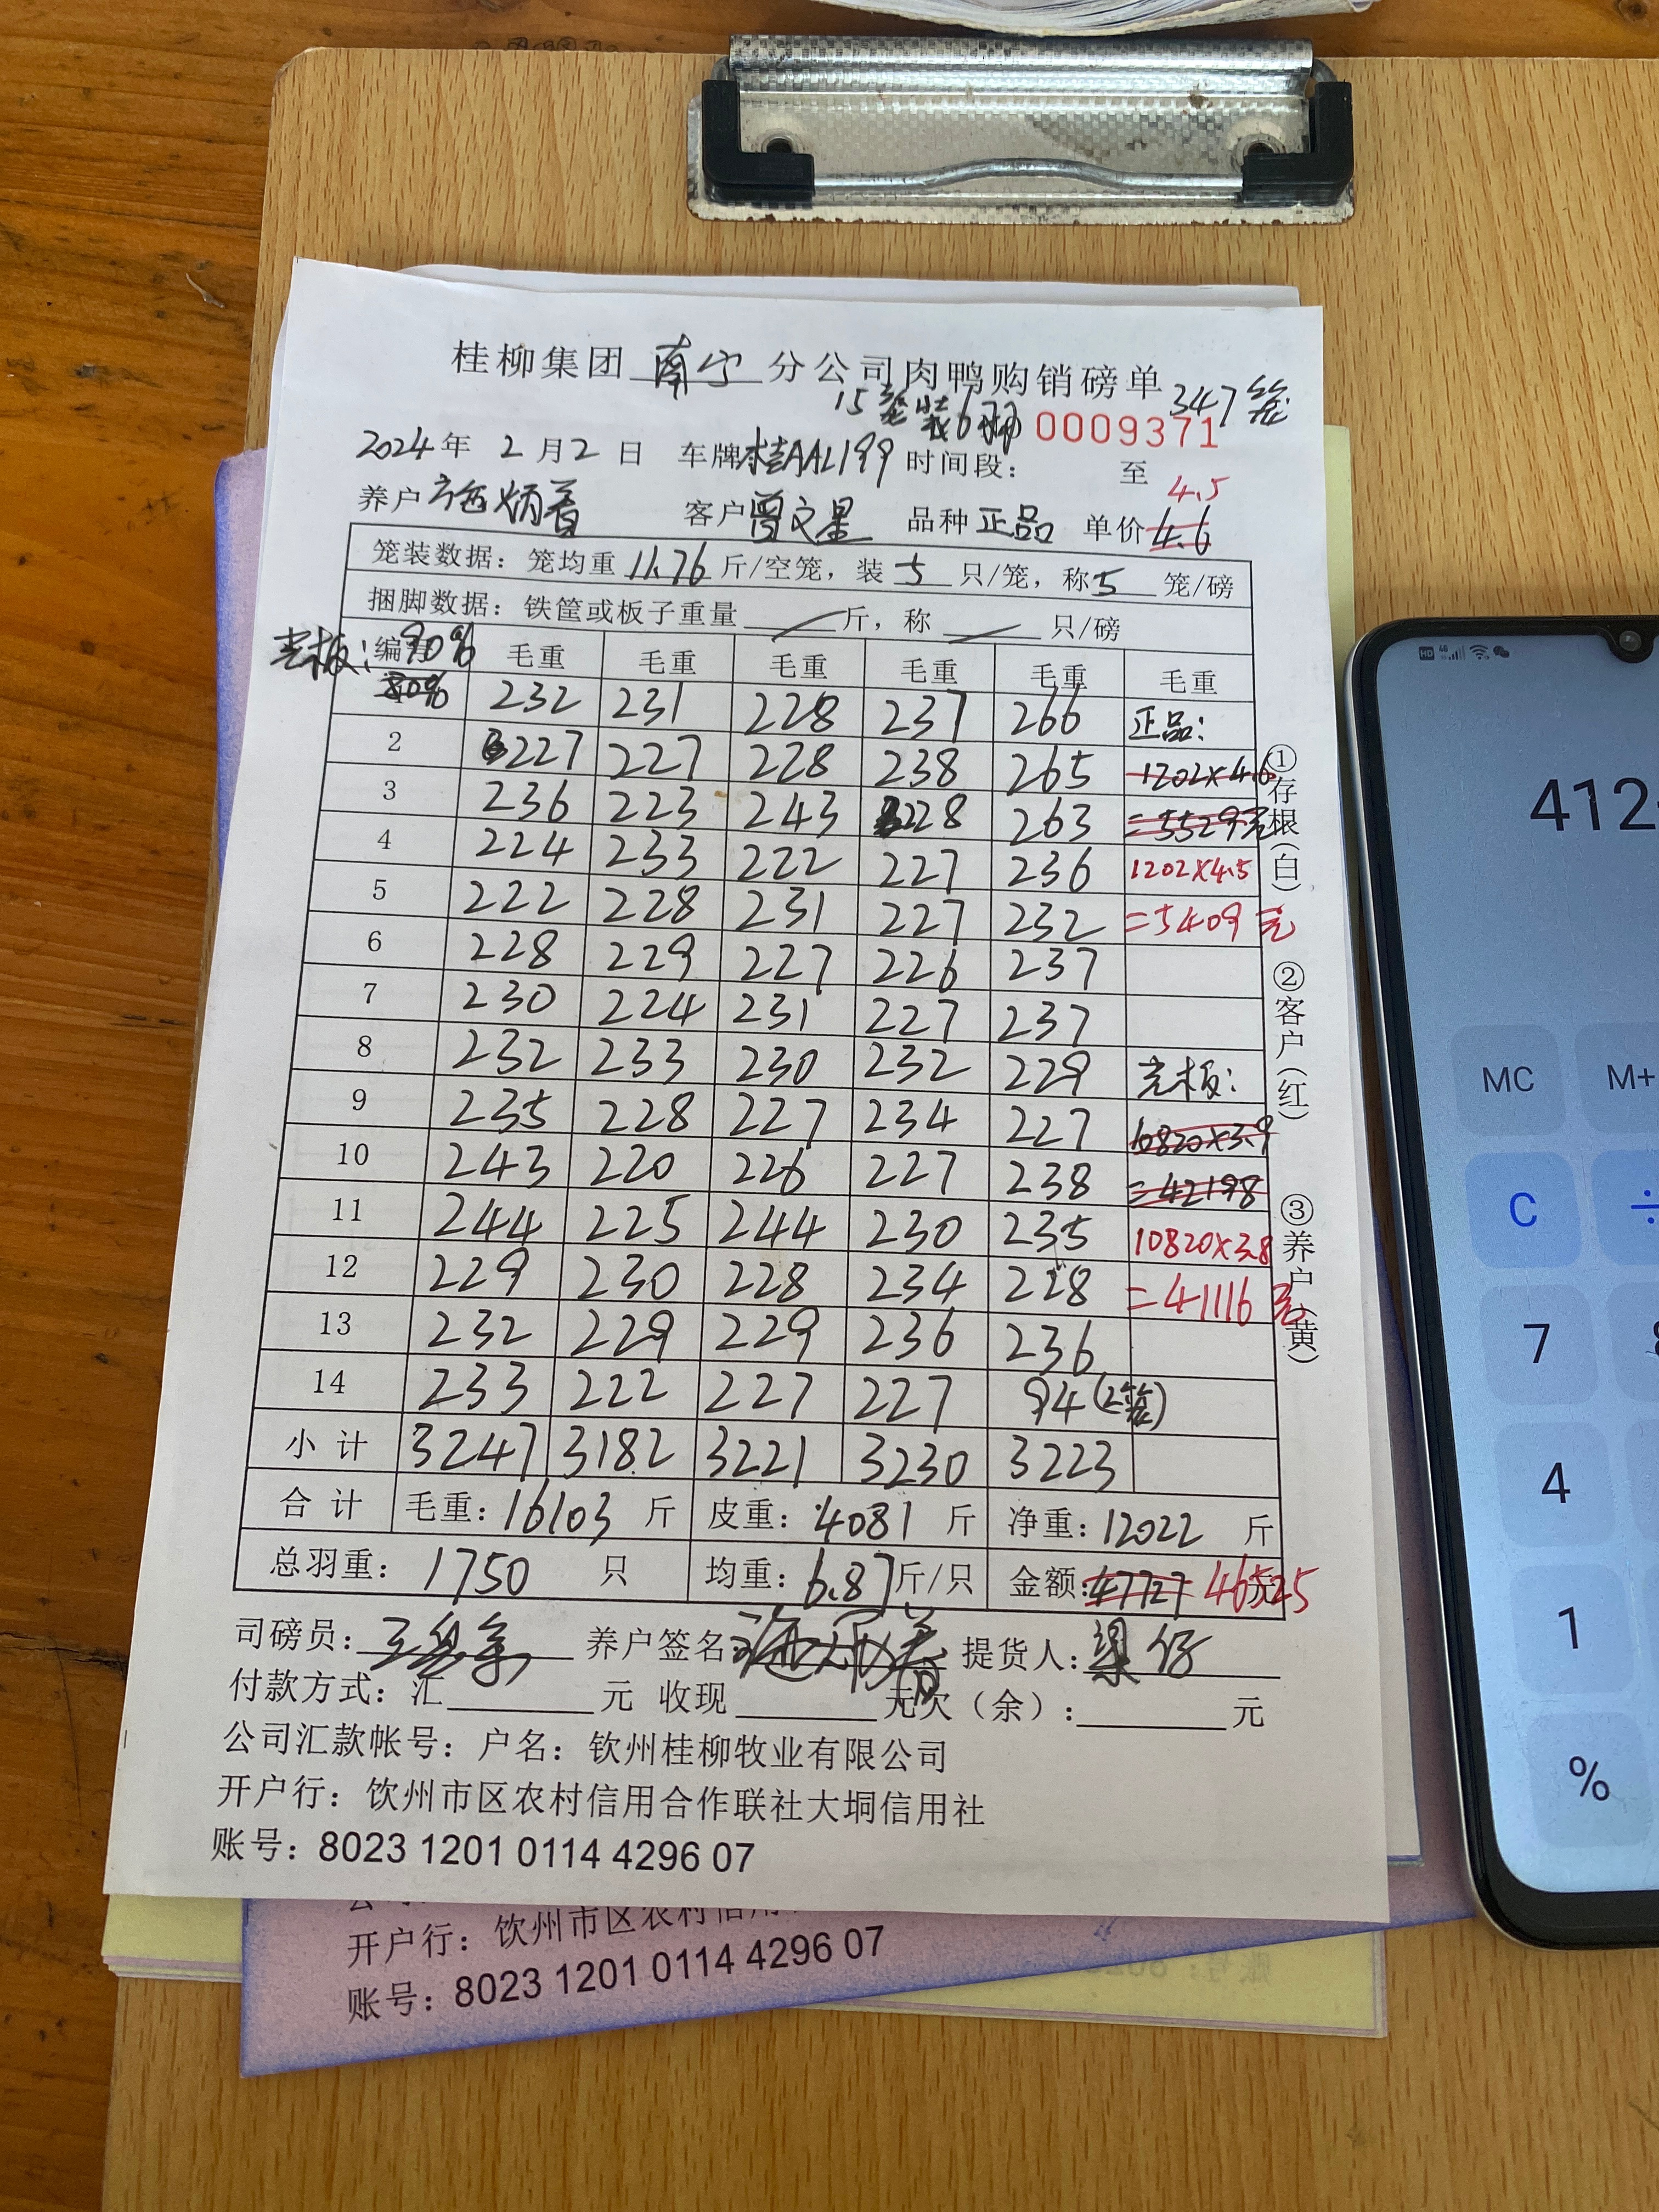 桂柳集团 南宁 分公司肉鸭购销磅单
15笼装6只 347笼
0009371
2024年 2月2日 车牌 桂AAL199 时间段: 至
4.5
养户 施炳着 客户 曾文星 品种 正品 单价 4.6
笼装数据: 笼均重 11.76 斤/空笼, 装 5 只/笼, 称 5 笼/磅
捆脚数据: 铁筐或板子重量 斤, 称 只/磅
壳板: 90%
80%
编 毛重 毛重 毛重 毛重 毛重 毛重
232 231 228 237 266 正品:
2 227 227 228 238 265 1202×4.6
3 236 223 243 228 263 =5529元
4 224 233 222 227 236 1202×4.5
5 222 228 231 227 232 =5409元
6 228 229 227 226 237
7 230 224 231 227 237
8 232 233 230 232 229 壳板:
9 235 228 227 234 227 10820×3.9
10 243 220 226 227 238 =42198
11 244 225 244 230 235 10820×3.8
12 229 230 228 234 228 =41116元
13 232 229 229 236 236
14 233 222 227 227 94(2笼)
小计 3247 3182 3221 3230 3223
合计 毛重: 16103 斤 皮重: 4081 斤 净重: 12022 斤
总羽重: 1750 只 均重: 6.87 斤/只 金额: 47727 46525 元
①存根(白) ②客户(红) ③养户(黄)
司磅员: 养户签名: 提货人: 梁仔
付款方式: 汇 元 收现 元欠(余): 元
公司汇款帐号: 户名: 钦州桂柳牧业有限公司
开户行: 钦州市区农村信用合作联社大垌信用社
账号: 8023 1201 0114 4296 07
开户行: 钦州市区农村信用
账号: 8023 1201 0114 4296 07
412
MC M+
C ÷
7 8
4
1
%